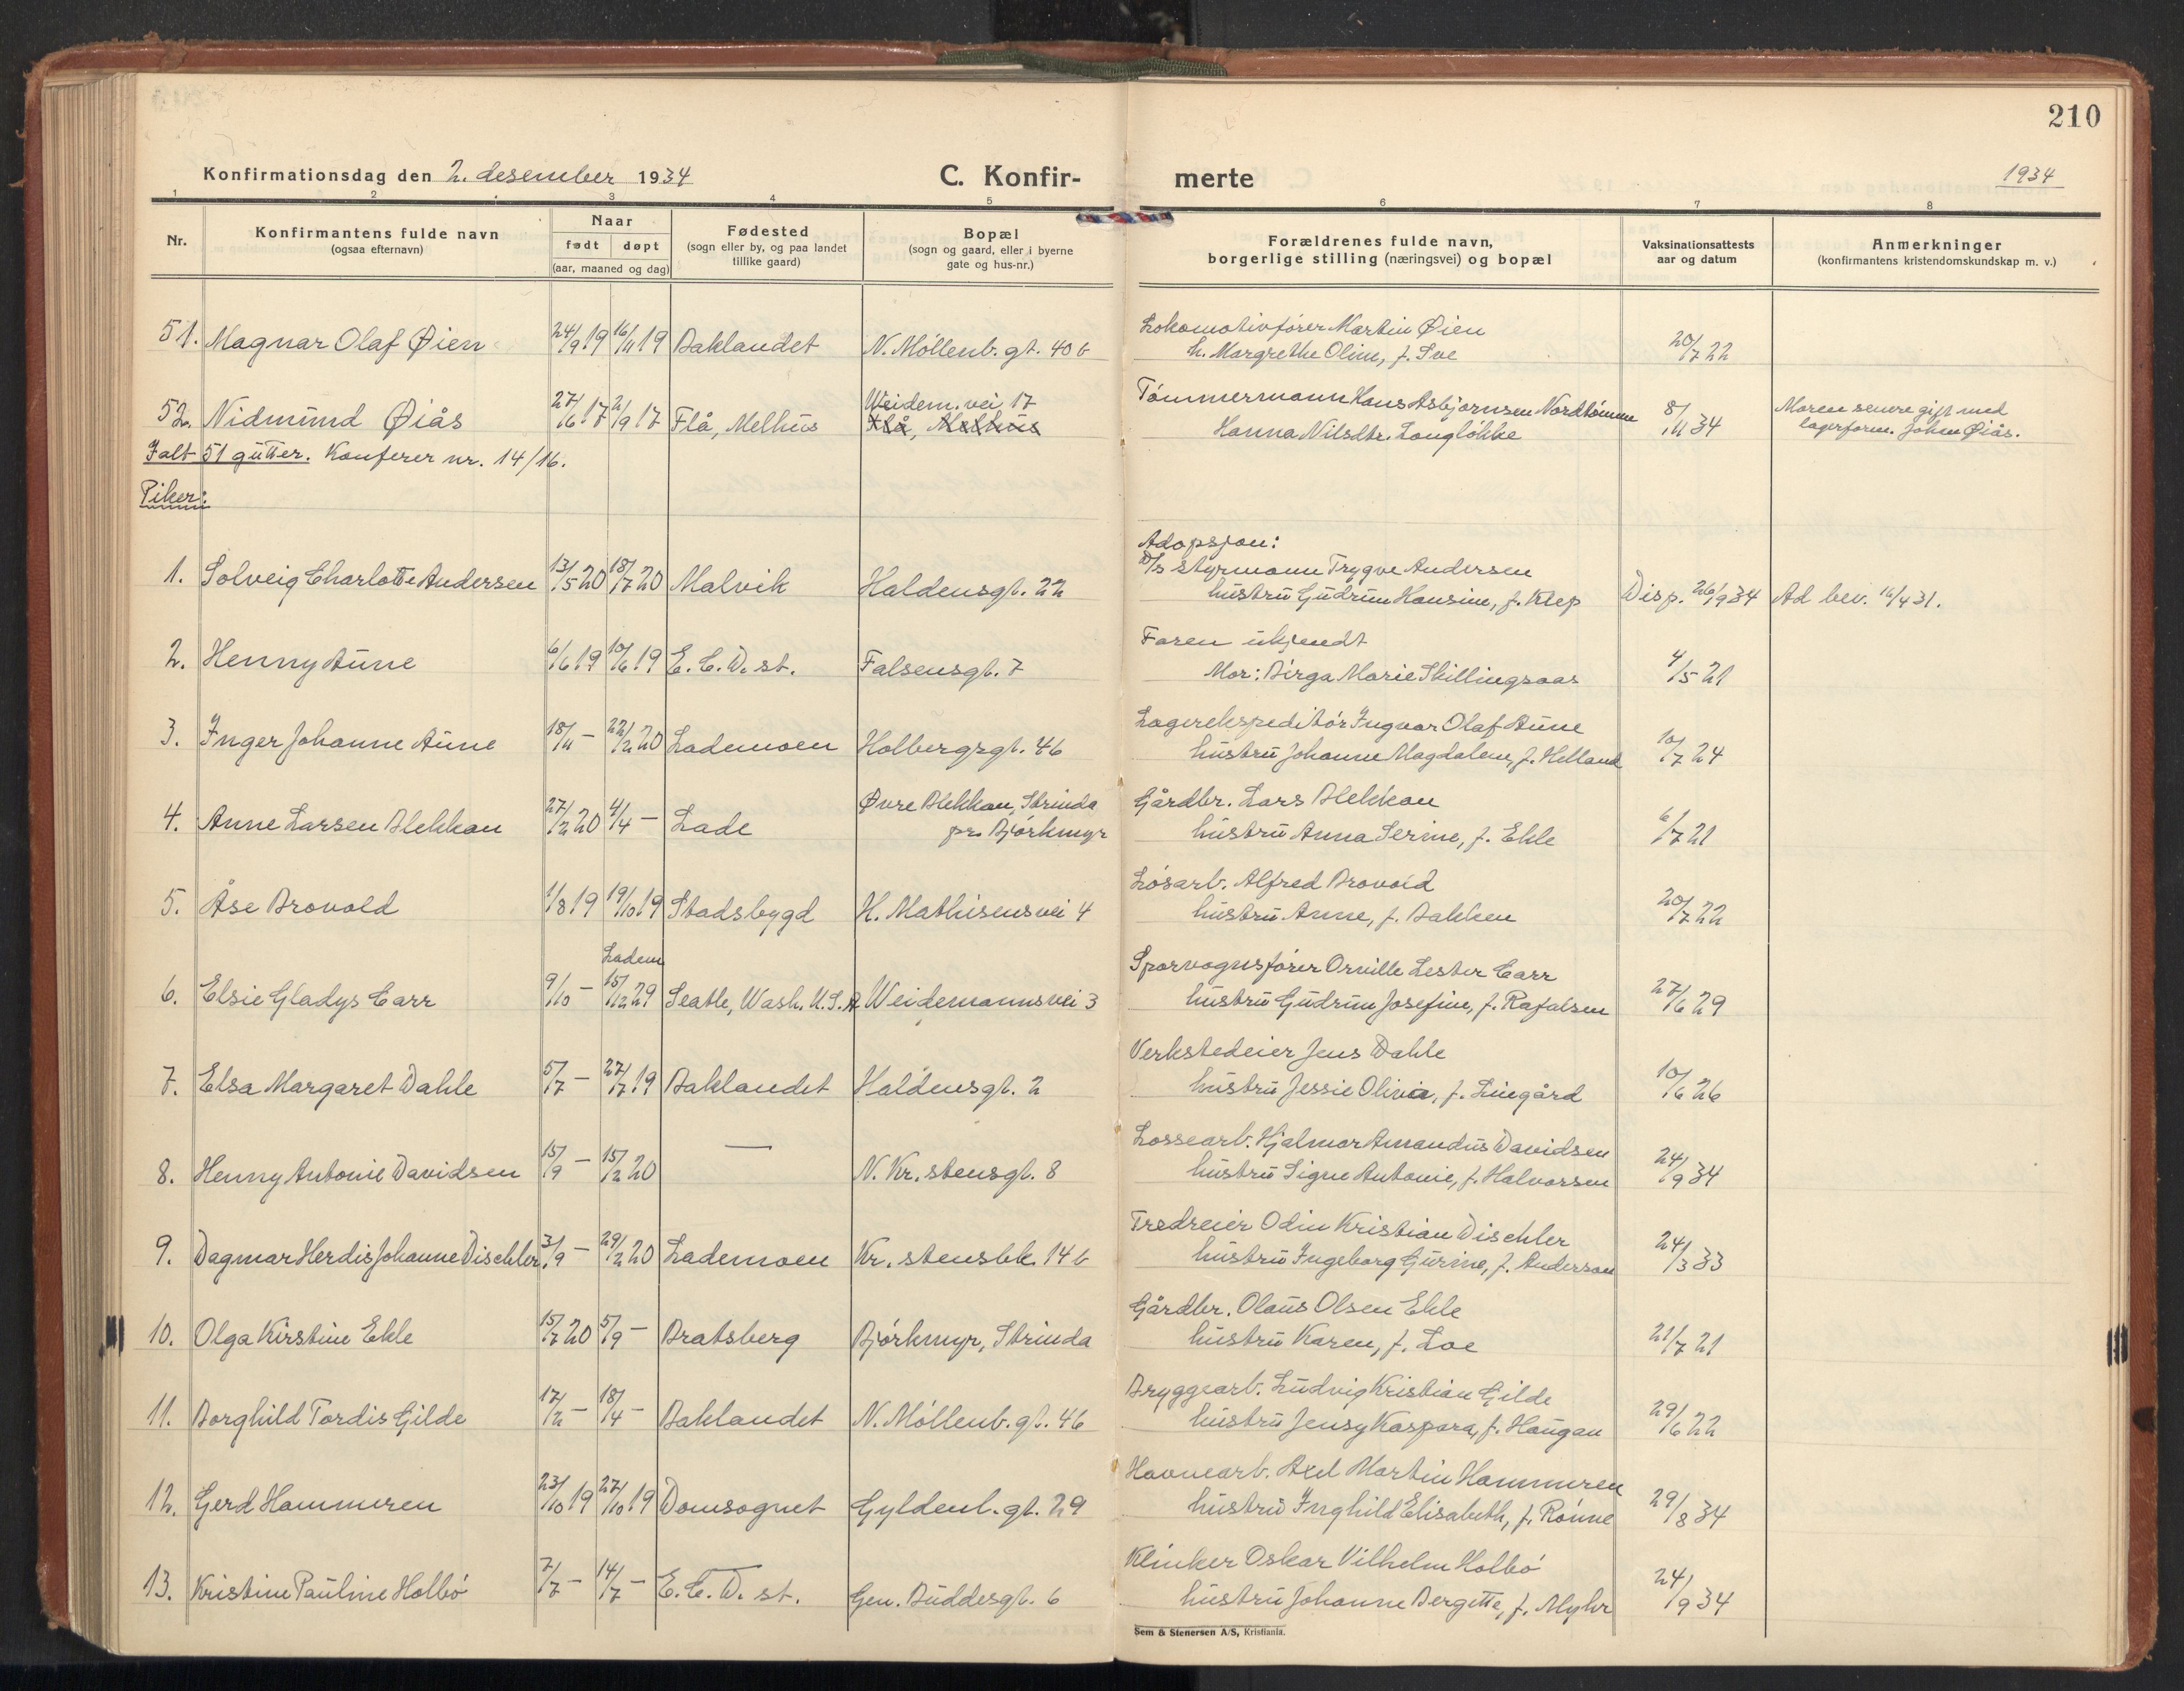 210
Konfirmationsdag den 2. desember 1934
C. Konfir-
merte
1934
1 2 3 4 5 6 7 8
Nr.
Konfirmantens fulde navn
(ogsaa efternavn)
Naar
født døpt
(aar, maaned og dag)
Fødested
(sogn eller by, og paa landet
tillike gaard)
Bopæl
(sogn og gaard, eller i byerne
gate og hus-nr.)
Forældrenes fulde navn,
borgerlige stilling (næringsvei) og bopæl
Vaksinationsattests
aar og datum
Anmerkninger
(konfirmantens kristendomskundskap m. v.)
Lokomotivfører Martin Øien
51. Magnar Olaf Øien 24/9 19 16/11 19 Baklandet N. Möllenb. gt. 40 b h. Margrethe Oline, f. Sve 20/7 22
Weidem. vei 17 Tömmermann Hans Asbjørnsen Nordtömme Moren senere gift med
52. Nidmund Øiås 27/6 17 2/9 17 Flå, Melhus Flå, Melhus Hanna Nilsdtr. Langlökke 8/11 34 lagerform. Johan Øiås.
Ialt 51 gutter. Konferer nr. 14/16.
Piker:
Adopsjon:
D/S styrmann Trygve Andersen
1. Solveig Charlotte Andersen 13/5 20 18/7 20 Malvik Haldensgt. 22 hustru Gudrun Hansine, f. Klep Disp. 26/9 34 Ad bev. 16/4 31.
Faren ukjendt
2. Henny Aune 6/6 19 10/6 19 E. C. D. st. Falsensgt. 7 Mor: Birga Marie Skillingsaas 4/5 21
Lagerekspeditör Ingvar Olaf Aune
3. Inger Johanne Aune 18/11 – 22/2 20 Lademoen Holbergsgt. 46 hustru Johanne Magdalene, f. Helland 10/7 24
Øvre Blekkan, Strinda Gårdbr. Lars Blekkan
4. Anne Larsen Blekkan 27/2 20 4/4 – Lade pr. Björkmyr hustru Anna Serine, f. Ekle 6/7 21
Lösarb. Alfred Brovold
5. Åse Brovold 1/8 19 19/10 19 Stadsbygd H. Mathisens vei 4 hustru Anne, f. Bakken 20/7 22
Ladem Sporvognsförer Orville Lester Carr
6. Elsie Gladys Carr 9/10 – 15/12 29 Seatle, Wash. U.S.A Weidemannsvei 3 hustru Gudrun Josefine, f. Rafalsen 27/6 29
Verkstedeier Jens Dahle
7. Elsa Margaret Dahle 5/7 – 27/7 19 Baklandet Haldensgt. 2 hustru Jessie Olivia, f. Liegård 10/6 26
Lossearb. Hjalmar Amandus Davidsen
8. Henny Antonie Davidsen 15/9 – 15/2 20 — N. Kr. stensgt. 8 hustru Signe Antonie, f. Halvorsen 24/9 34
Tredreier Odin Kristian Dischler
9. Dagmar Herdis Johanne Dischler 3/9 – 29/2 20 Lademoen Kr. stensbk. 14 b hustru Ingeborg Gurine, f. Anderson 24/3 33
Gårdbr. Olaus Olsen Ekle
10. Olga Kirstine Ekle 15/7 20 5/9 – Bratsberg Björkmyr, Strinda hustru Karen, f. Loe 21/7 21
Bryggearb. Ludvig Kristian Gilde
11. Borghild Tordis Gilde 17/2 – 18/4 – Baklandet N. Möllenb. gt. 46 hustru Jensy Kaspara, f. Haugan 29/6 22
Havnearb. Axel Martin Hammeren
12. Gerd Hammeren 23/10 19 27/10 19 Domsognet Gyldenl. gt. 29 hustru Inghild Elisabeth, f. Rönne 29/8 34
Klinker Oskar Vilhelm Holbö
13. Kristine Pauline Holbö 7/7 – 14/7 – E. C. D. st. Gen. Buddesgt. 6 hustru Johanne Bergitte, f. Myhr 24/9 34
Sem & Stenersen A/S, Kristiania.